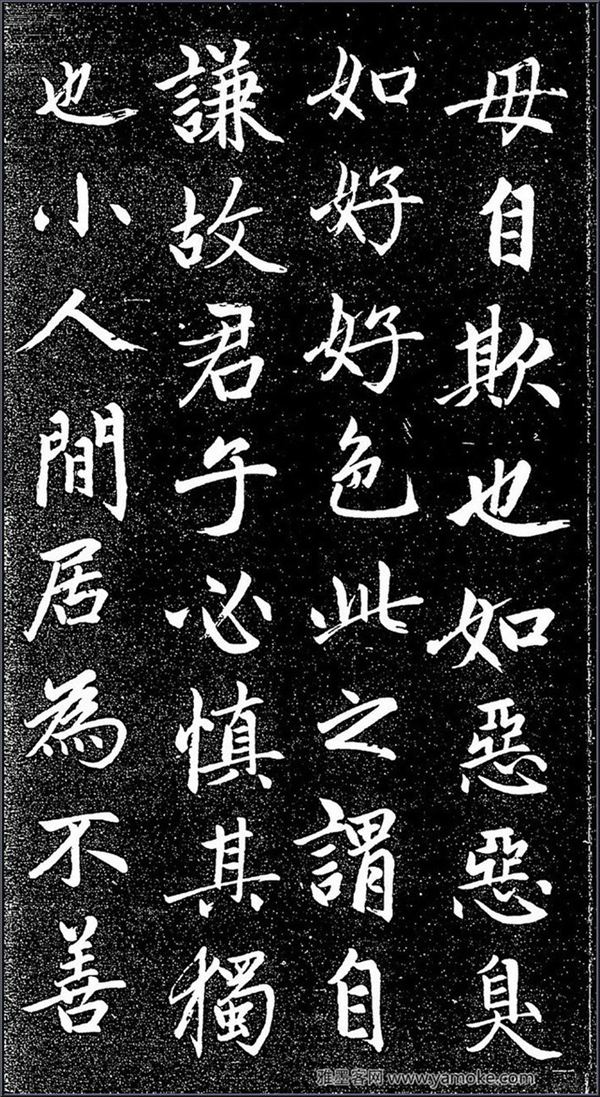 毋自欺也如惡惡臭
如好好色此之謂自
謙故君子必慎其獨
也小人閒居為不善
雅墨客网 www.yamoke.com